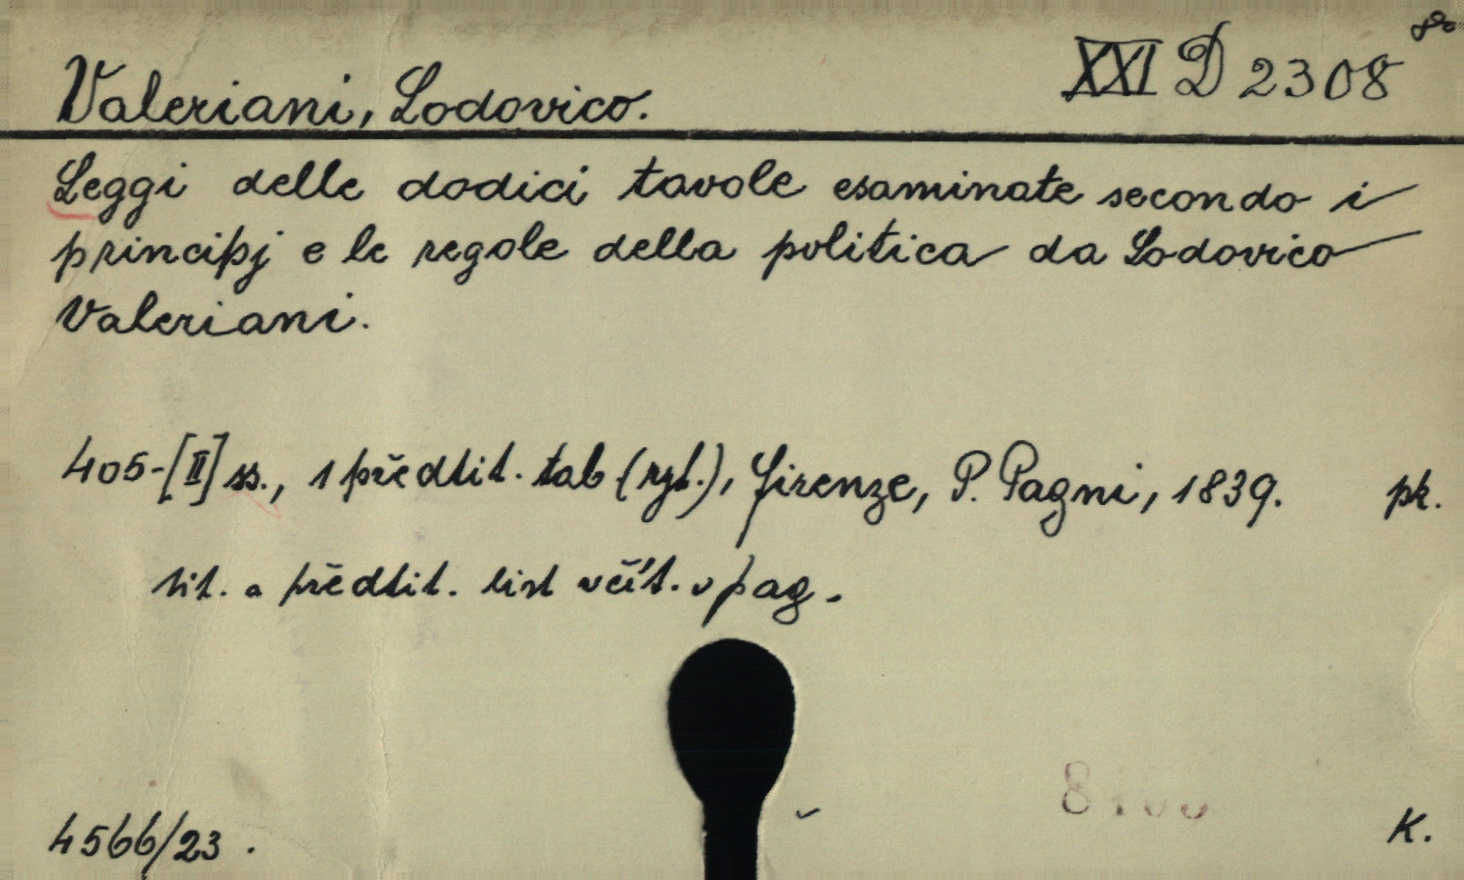 XXI D 2308 8°
Valeriani, Lodovico.
Leggi delle dodici tavole esaminate secondo i
principj e le regole della politica da Lodovico
Valeriani.
405-[II] ss., 1 předtit. tab (ryt.), Firenze, P. Pagni, 1839. pk.
tit. a předtit. list včít. v pag.
4566/23. K.